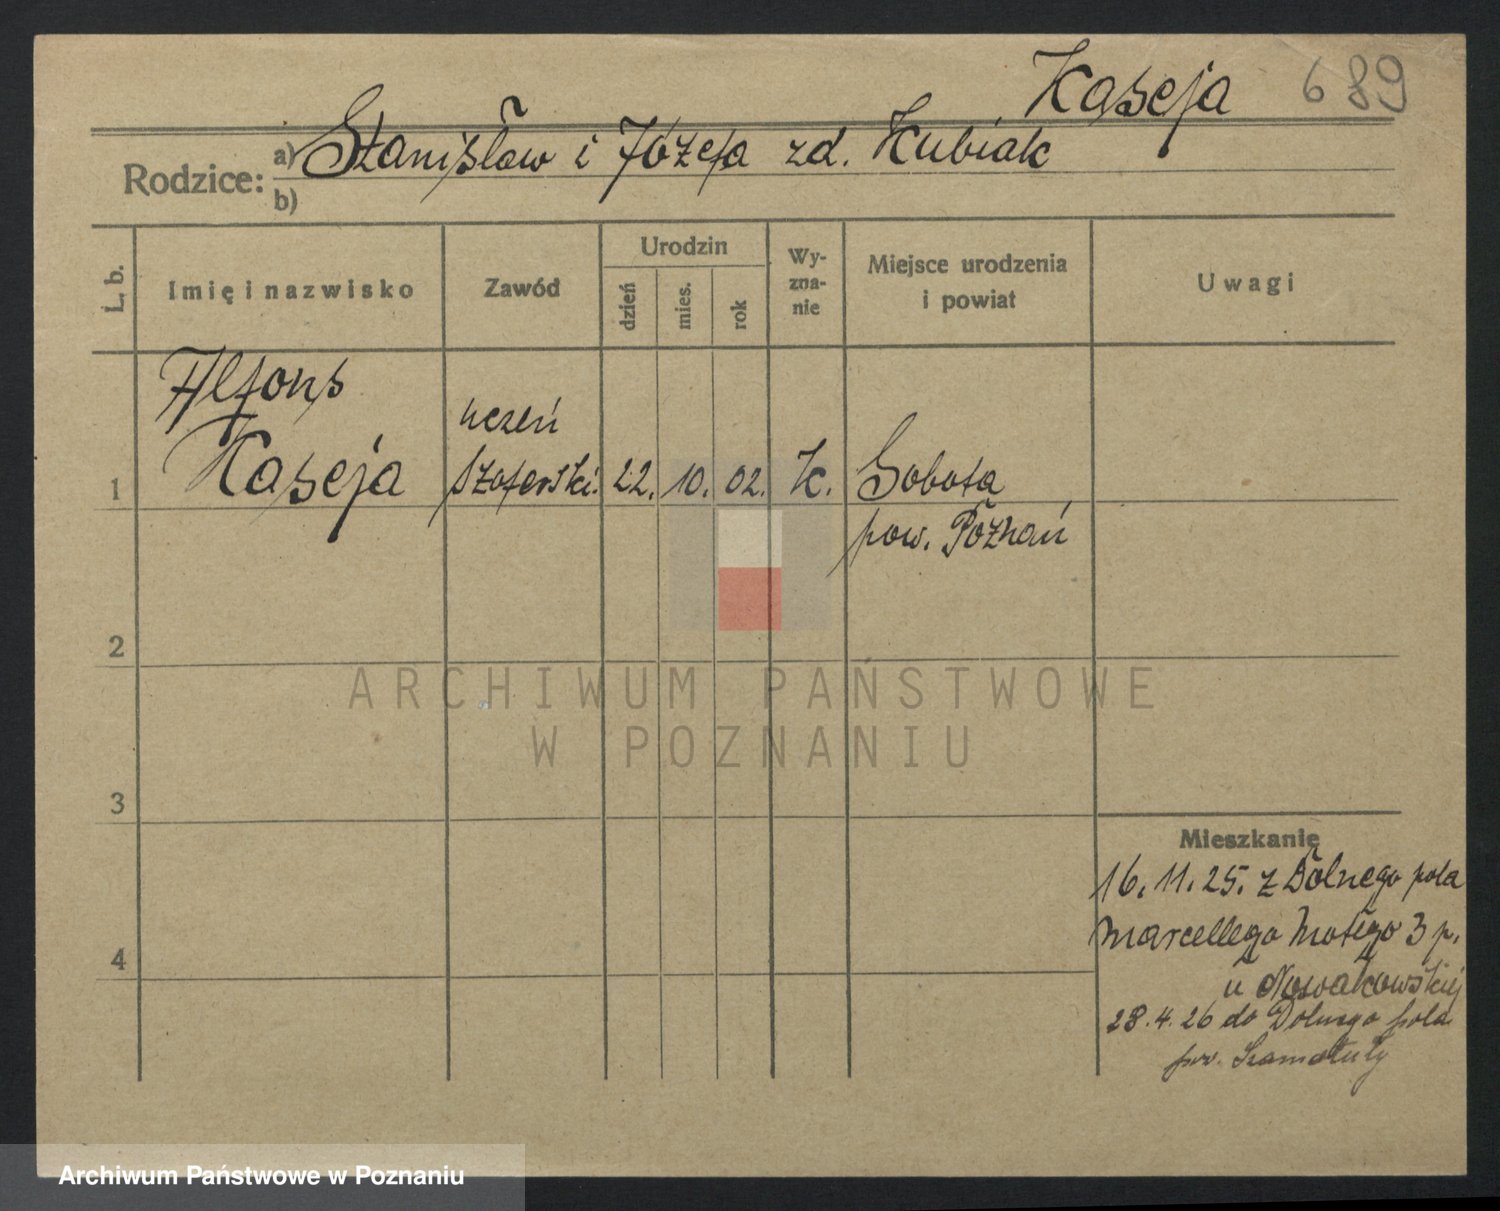 Kaseja 689
Rodzice: a) Stanisław i Józefa zd. Kubiak
b)
L. b. Imię i nazwisko Zawód Urodzin dzień mies. rok Wy-zna-nie Miejsce urodzenia i powiat Uwagi
Alfons uczeń
1 Kaseja szoferski. 22. 10. 02. k. Sobota
pow. Poznań
2
ARCHIWUM PAŃSTWOWE
W POZNANIU
3
Mieszkanie
16. 11. 25. z Dolnego pola
4 Marcellego Motego 3 p.
u Nowakowskiej
28. 4. 26 do Dolnego pola
pow. Szamotuły
Archiwum Państwowe w Poznaniu